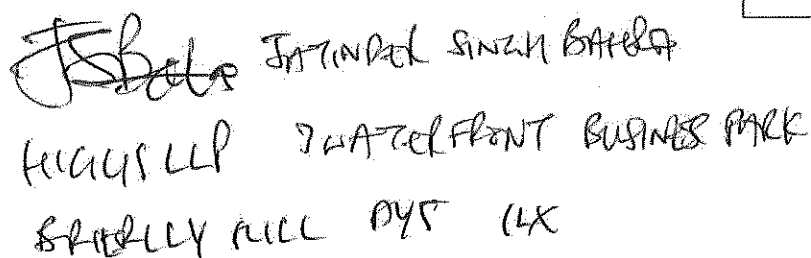 JSBahra JATINDER SINGH BAHRA
HIGGS LLP 3 WATERFRONT BUSINESS PARK
BRIERLEY HILL DY5 1LX